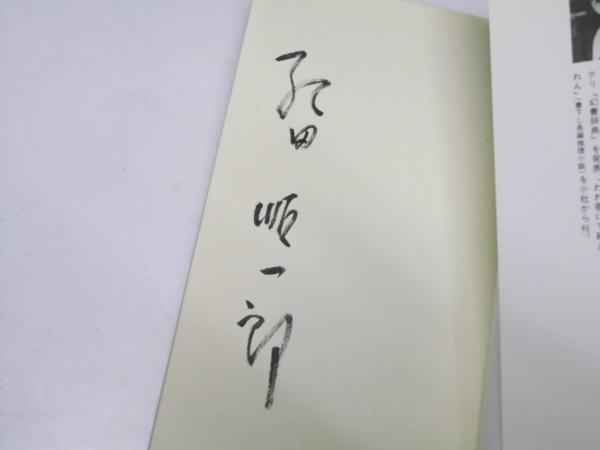 紀田順一郎
テリ『幻書辞典』を発表、『われ巷にて
れん』（書下し長編推理小説）を小社から刊。